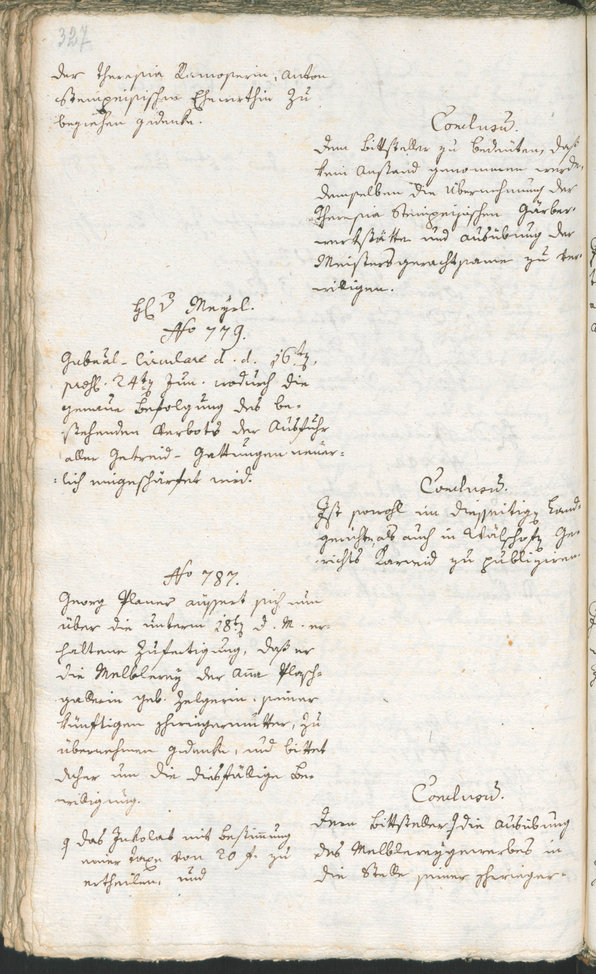 327
der Theresia Ramoserin, Anton
Steinpeißischen Ehewirthin zu
begeichen gedenke.
Conclusum.
Dem Bittsteller zu bedeuten, daß
kein Anstand genommen werde,
demselben die Übernehmung der
Theresia Steinpeißischen Gärber-
werkstätte und Ausübung der
Meistersgerechtsame zu ver-
willigen.
Meyrl.
No 779.
Gubernial-Circulare d. d. 16ten,
präs. 24ten Jun. wodurch die
genaue Befolgung des be-
stehenden Verbots der Ausfuhr
aller Getreid-Gattungen neuer-
lich eingeschärfet wird.
Conclusum.
Ist sowohl im diesseitigen Land-
gericht als auch in Wälschofn Ge-
richts Karneid zu publiziren.
No 787.
Georg Planer äussert sich nun
über die unterm 18ten d. M. er-
haltene Zufertigung, daß er
die Melblerey der Anna Plasch-
gallerin geb. Zelgerin, seiner
künftigen Schwiegermutter, zu
übernehmen gedenke, und bittet
daher um die diesfällige Be-
willigung.
Conclusum.
Dem Bittsteller die Ausübung
des Melblereygewerbes in
die Stelle seiner Schwieger-
das Inkolat mit Bestimmung
einer Taxe von 20 f. zu
ertheilen, und